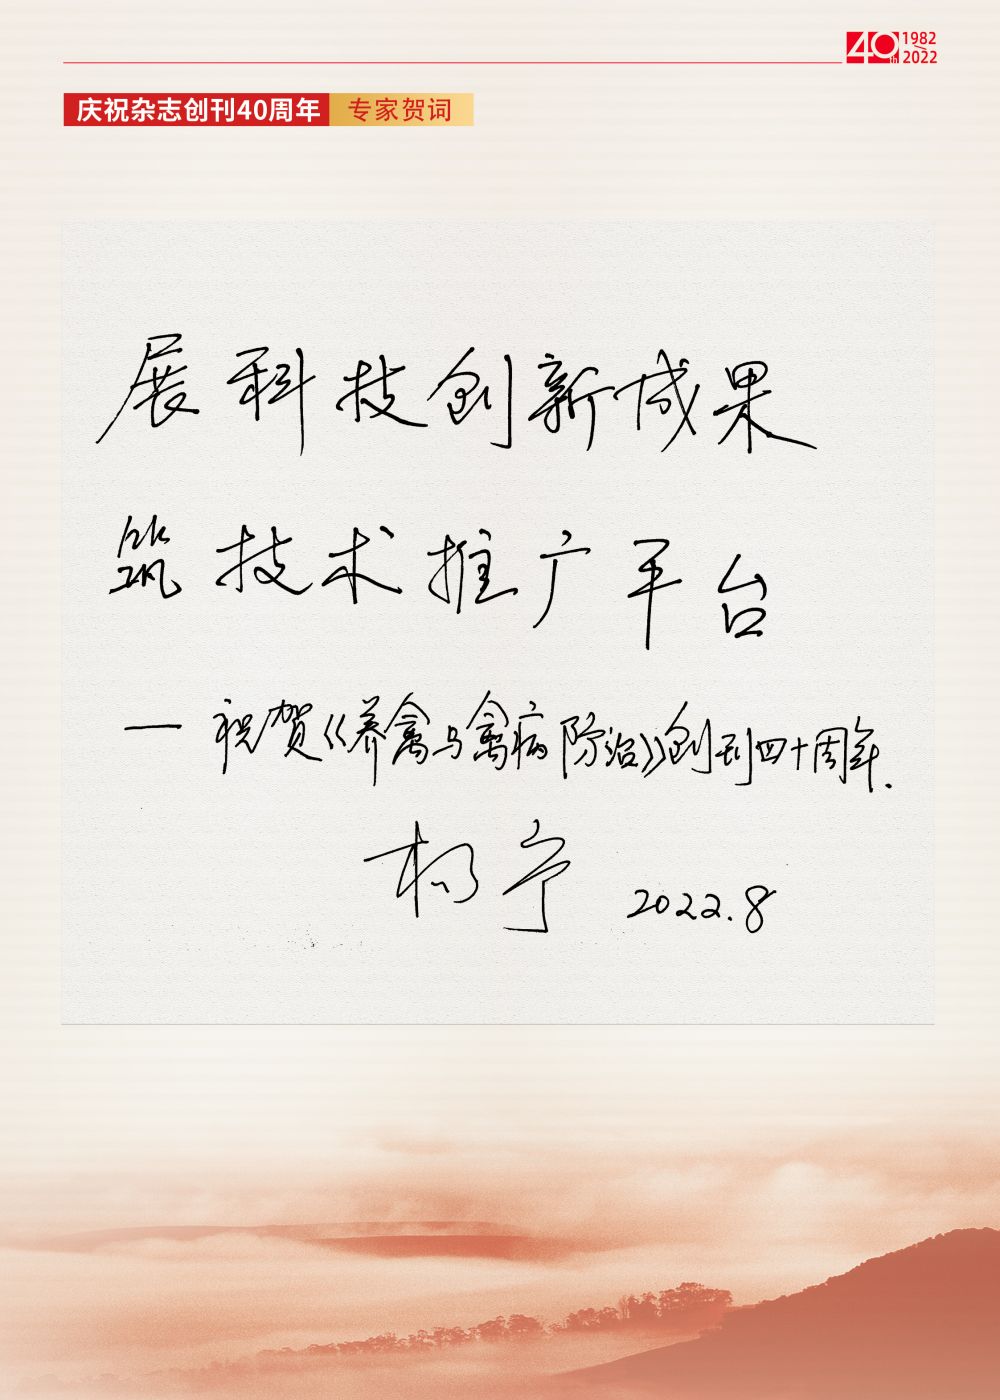 40th 1982
2022
庆祝杂志创刊40周年 专家贺词
展科技创新成果
筑技术推广平台
— 祝贺《养禽与禽病防治》创刊四十周年.
杨宁 2022.8